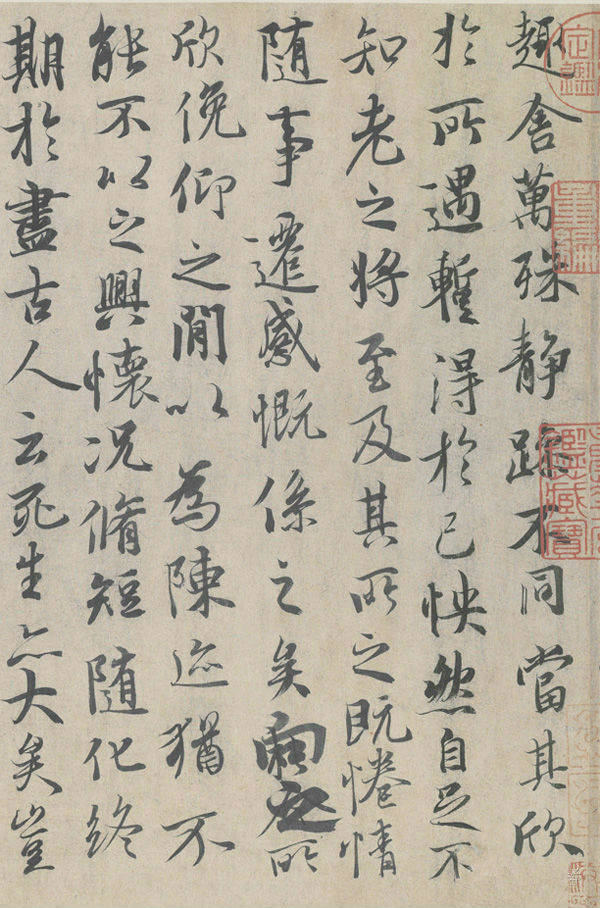 趣舍萬殊静躁不同當其欣
於所遇蹔得於己怏然自足不
知老之將至及其所之既惓情
隨事遷感慨係之矣向之所
欣俛仰之間以為陳迹猶不
能不以之興懷況脩短隨化終
期於盡古人云死生亦大矣豈
定鑑
重編
鑑藏寶